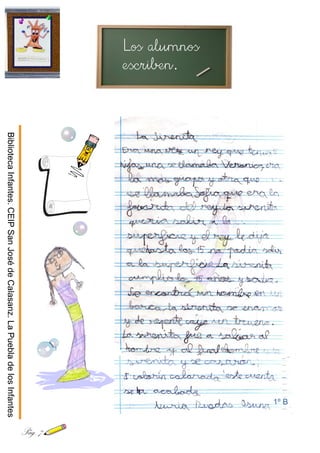 Los alumnos
escriben.
Biblioteca Infantes. CEIP San José de Calasanz. La Puebla de los Infantes
La Sirenita
Era una vez un rey que tenía
hijas, una se llamaba Veronica, era
la más guapa y otra que
se llamaba Sofía, que era la
favorita del rey. La sirenita
quería salir a la
superficie y el rey le dijo
que hasta los 15 no podía salir
a la superficie. La sirenita
cumplió los 15 años y salió.
Se encontró un hombre en un
barco, la sirenita se enamoro
y de repente cayó un trueno.
La sirenita fue a salvar al
hombre y al final el hombre
sirenita y se casaron.
Y colorín colorado este cuento
se ha acabado
Nuria
1º B
Pág. 7